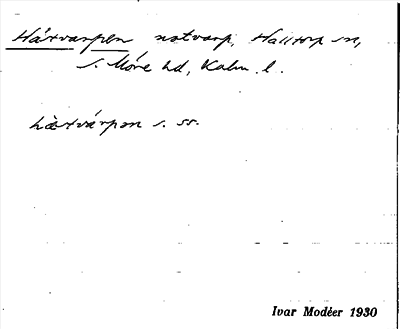 Hästvarpen notvarp, Halltorp sn,
S. Möre hd, Kalm. l.
hästvárpen s. ss.
Ivar Modéer 1930